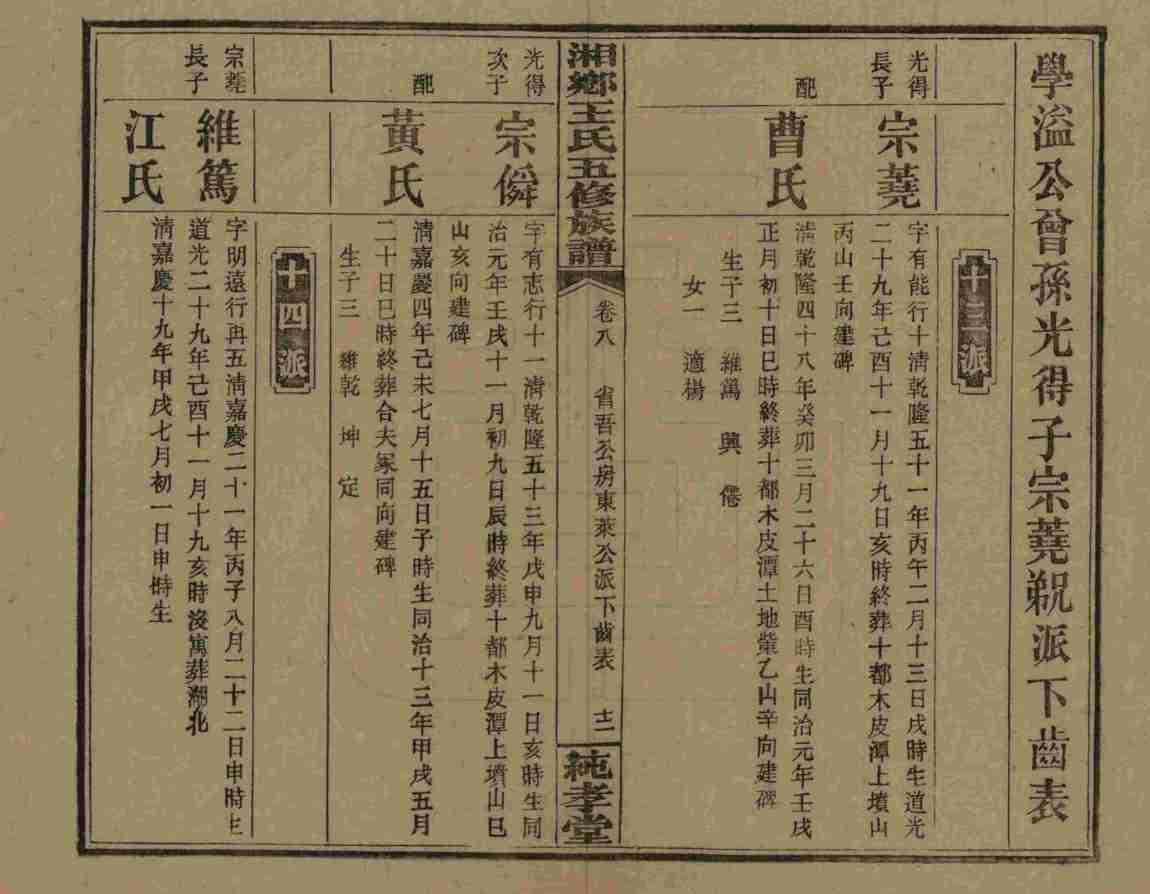 學溢公曾孫光得子宗蕘、派下齒表
十三派
光得
長子
宗蕘
字有能行十清乾隆五十一年丙午二月十三日戌時生道光
二十九年己酉十一月十九日亥時終葬十都木皮潭上墳山
丙山壬向建碑
配
曹氏
清乾隆四十八年癸卯三月二十六日酉時生同治元年壬戌
正月初十日巳時終葬十都木皮潭土地棠乙山辛向建碑
生子三 維篤 興 僊
女一 適楊
湘鄉王氏五修族譜
卷八 省吾公房東萊公派下齒表 十二
純孝堂
光得
次子
宗僢
字有志行十一清乾隆五十三年戊申九月十一日亥時生同
治元年壬戌十一月初九日辰時終葬十都木皮潭上墳山巳
山亥向建碑
配
黃氏
清嘉慶四年己未七月十五日子時生同治十三年甲戌五月
二十日巳時終葬合夫冢同向建碑
生子三 維乾 坤 定
十四派
宗蕘
長子
維篤
字明遠行再五清嘉慶二十一年丙子八月二十二日申時生
道光二十九年己酉十一月十九亥時沒寓葬湖北
江氏
清嘉慶十九年甲戌七月初一日申時生